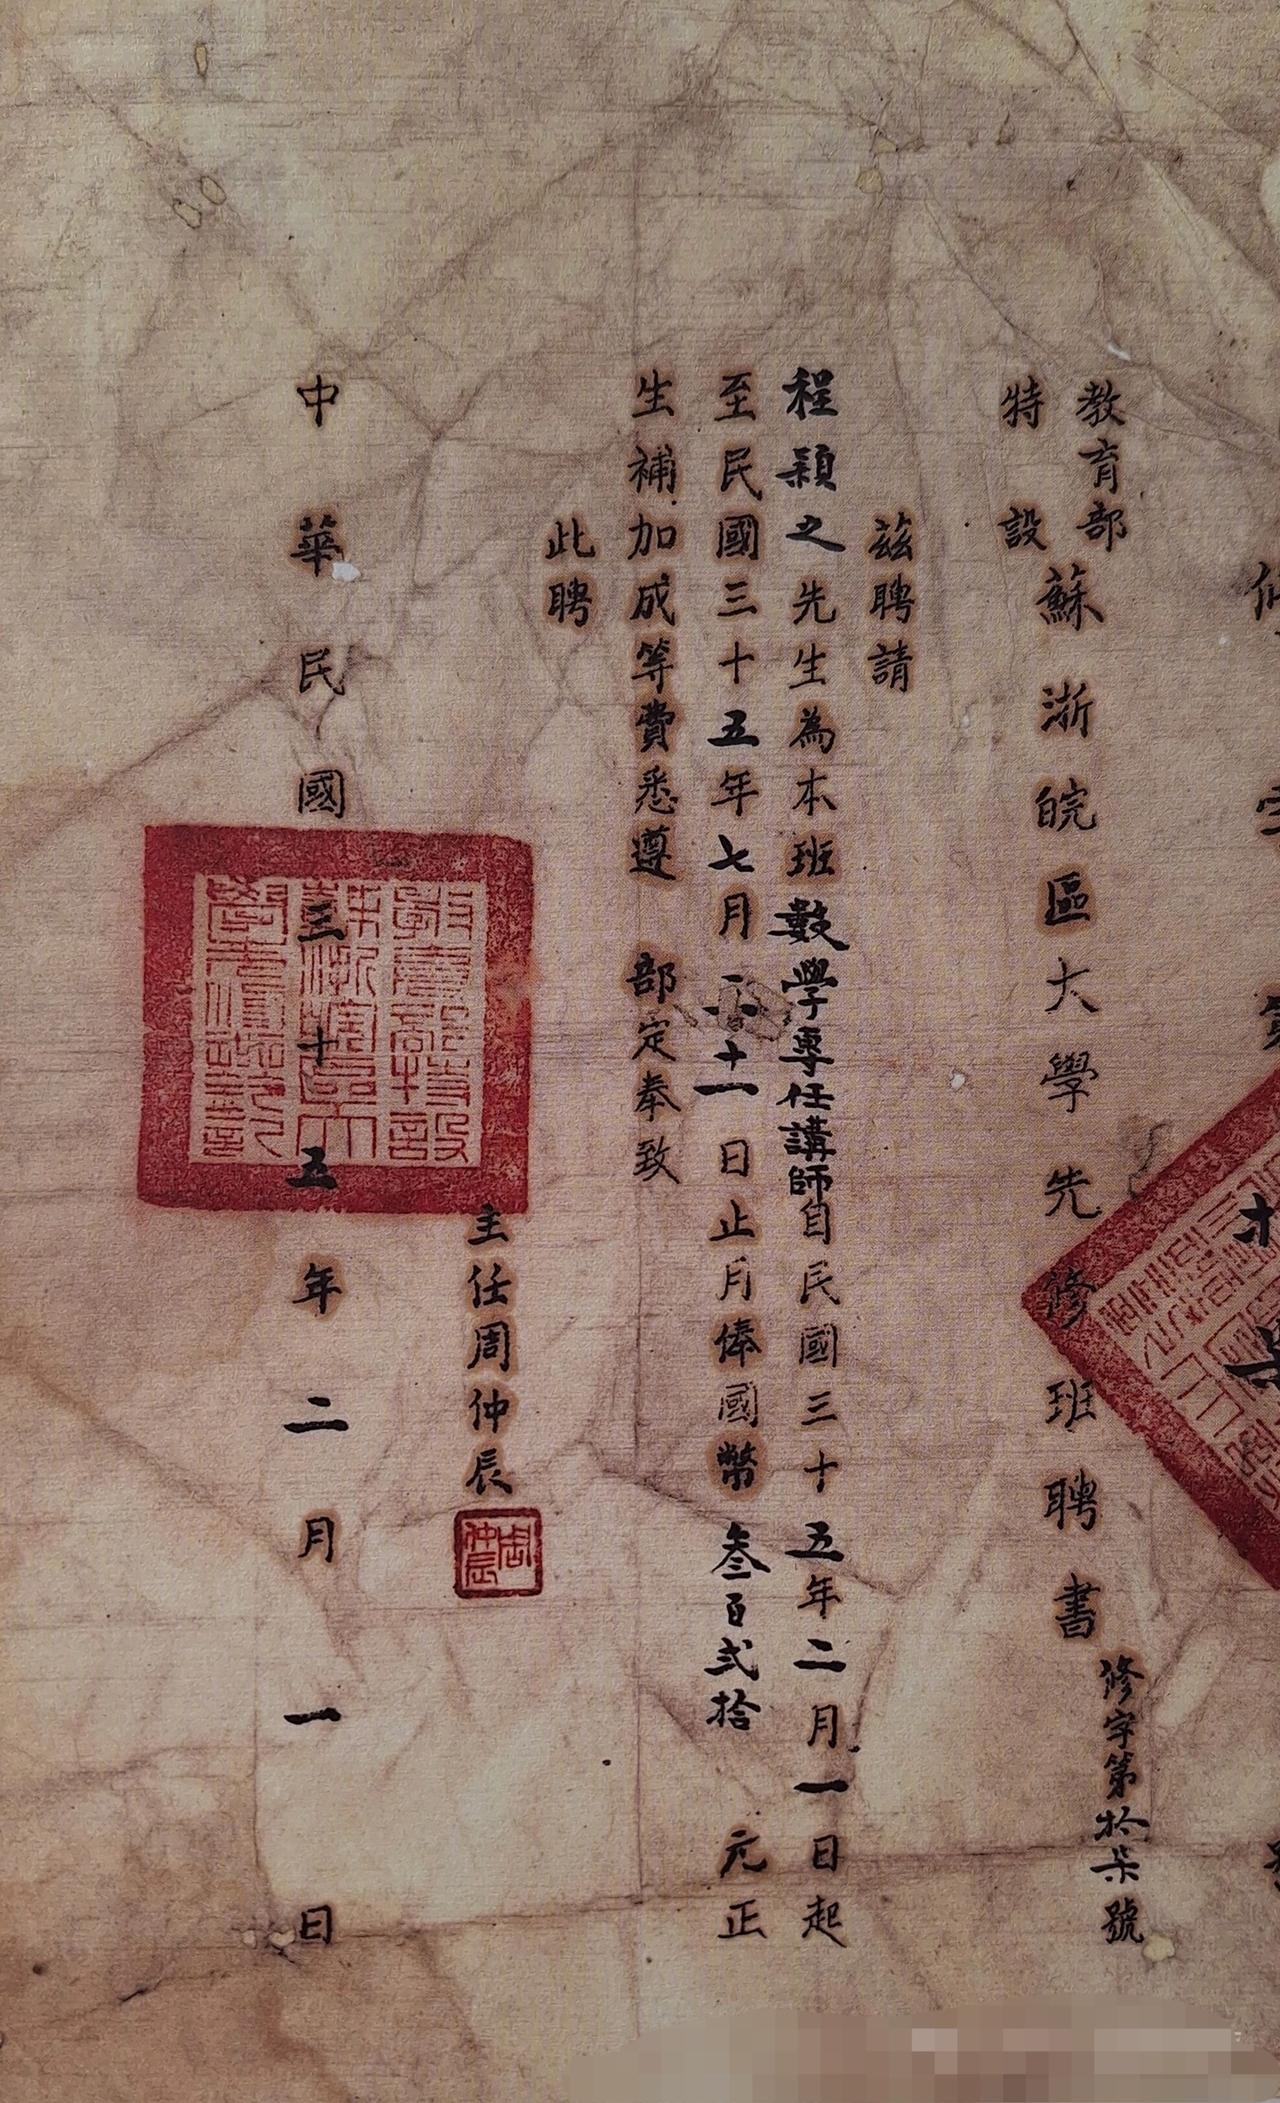 教育部
特設
蘇浙皖區大學先修班聘書
修字第拾柒號
茲聘請
程穎之先生為本班數學專任講師自民國三十五年二月一日起
至民國三十五年七月三十一日止月俸國幣叁百貳拾元正
生補加成等費悉遵 部定奉致
此聘
主任周仲辰
周仲辰
中華民國三十五年二月一日
教育部特設
蘇浙皖區大
學先修班